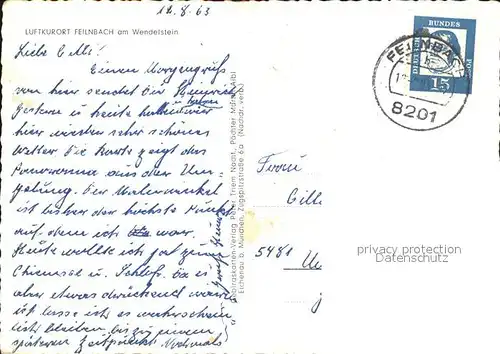 12.8.63
LUFTKURORT FEILNBACH am Wendelstein
Liebe Cilli!
Einen Morgengruß
von hier sendet der Heinrich
Gestern u. heute haben wir
hier wieder sehr schönes
Wetter Die Karte zeigt das
Panorama aus der Um
gebung. Der Malerwinkel
ist bisher der höchste Punkt
auf dem ich war.
Heute wollte ich zum
Chiemsee u. Schloß. Da es
aber etwas drückend warm
ist lasse ich es wahrscheinlich
bleiben, bis zu einem
späteren Zeitpunkt Nochmals
Gebiraskarten-Verlag Peter Triem Nachf., Pächter Martin Albl
Eichenau b. München, Zugspitzstraße 6a (Nachdr. verb.)
DEUTSCHE BUNDESPOST
15
FEILNBACH
8201
Frau
Cilli
5481
privacy protection
Datenschutz